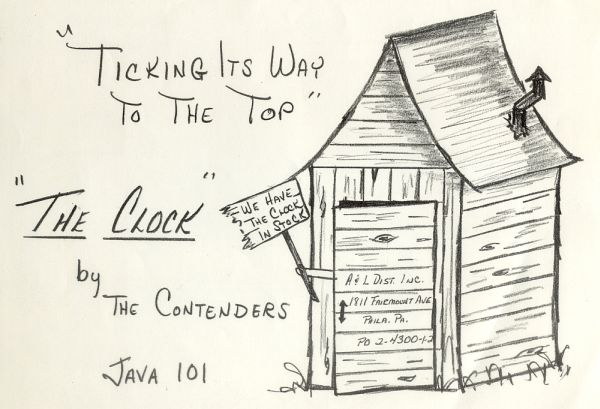 "Ticking Its Way
To The Top"
"The Clock"
by
The Contenders
Java 101
We Have
The Clock
In Stock
A & L Dist. Inc.
1811 Fairmount Ave
Phila. Pa.
PO 2-4300-1-2